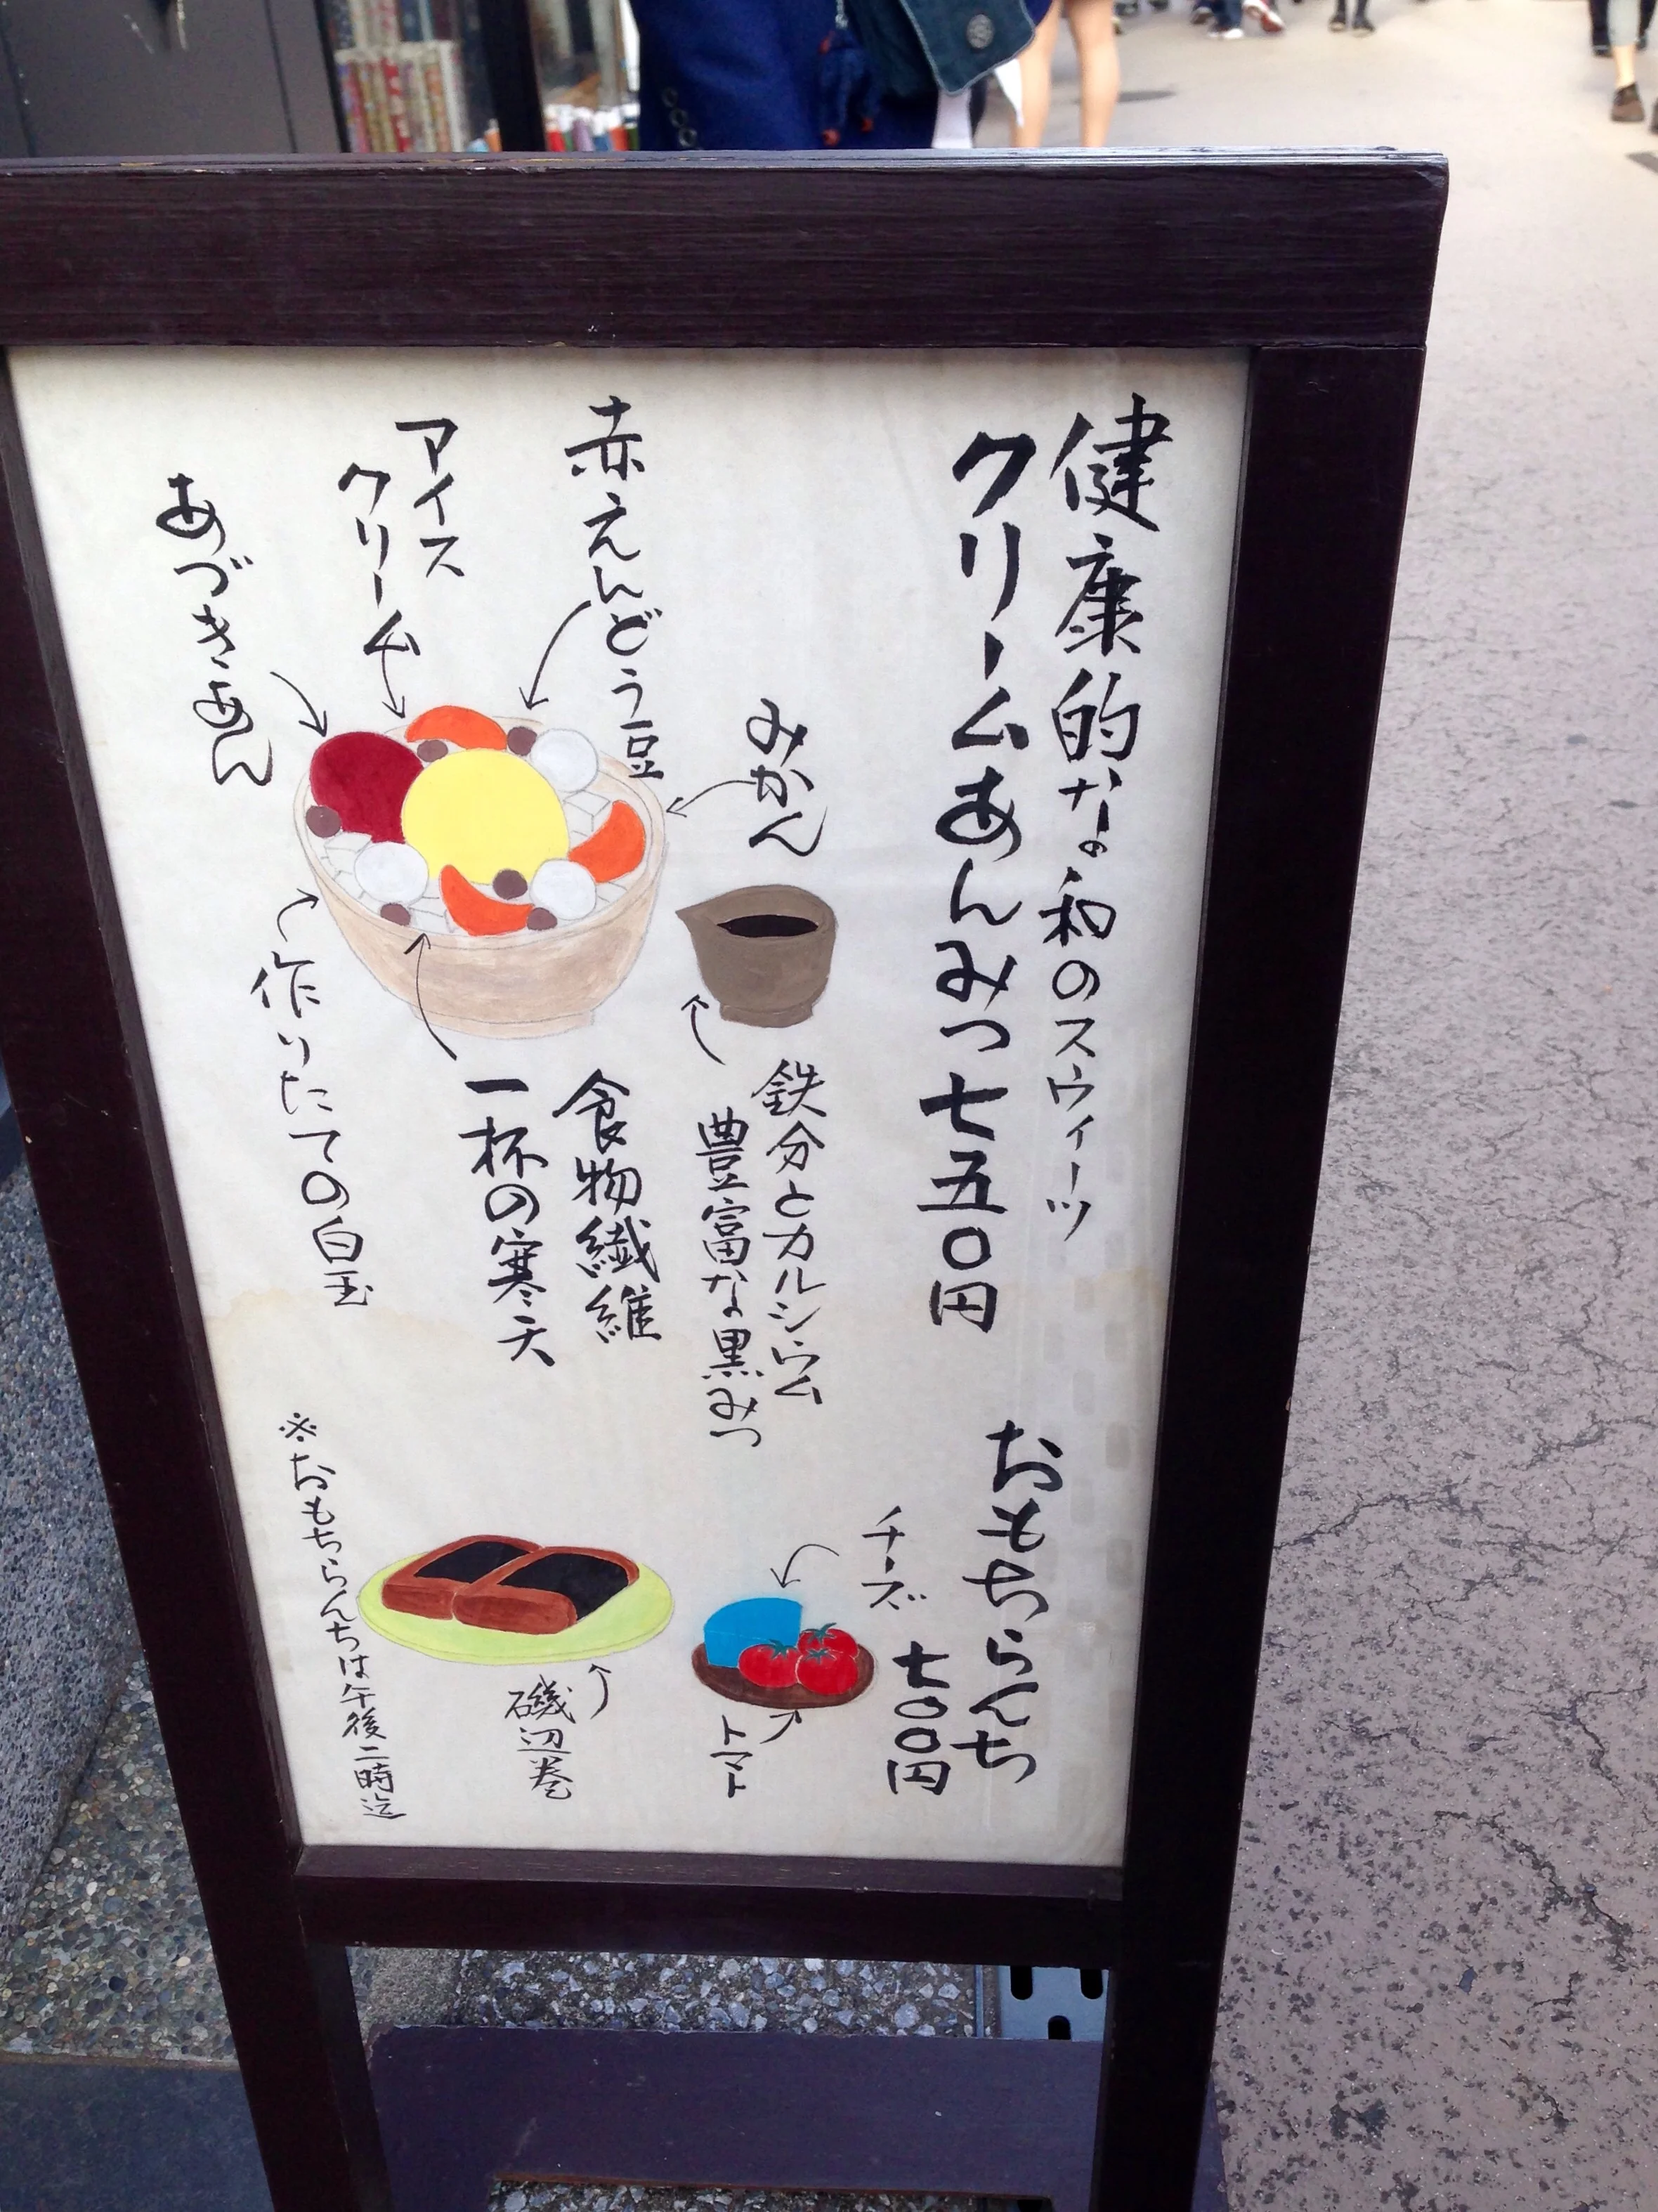 健康的な和のスウィーツ
クリームあんみつ七五〇円
みかん
赤えんどう豆
アイス
クリーム
あづきあん
鉄分とカルシウム
豊富な黒みつ
食物繊維
一杯の寒天
作りたての白玉
おもちらんち
七〇〇円
チーズ
トマト
磯辺巻
※おもちらんちは午後二時迄